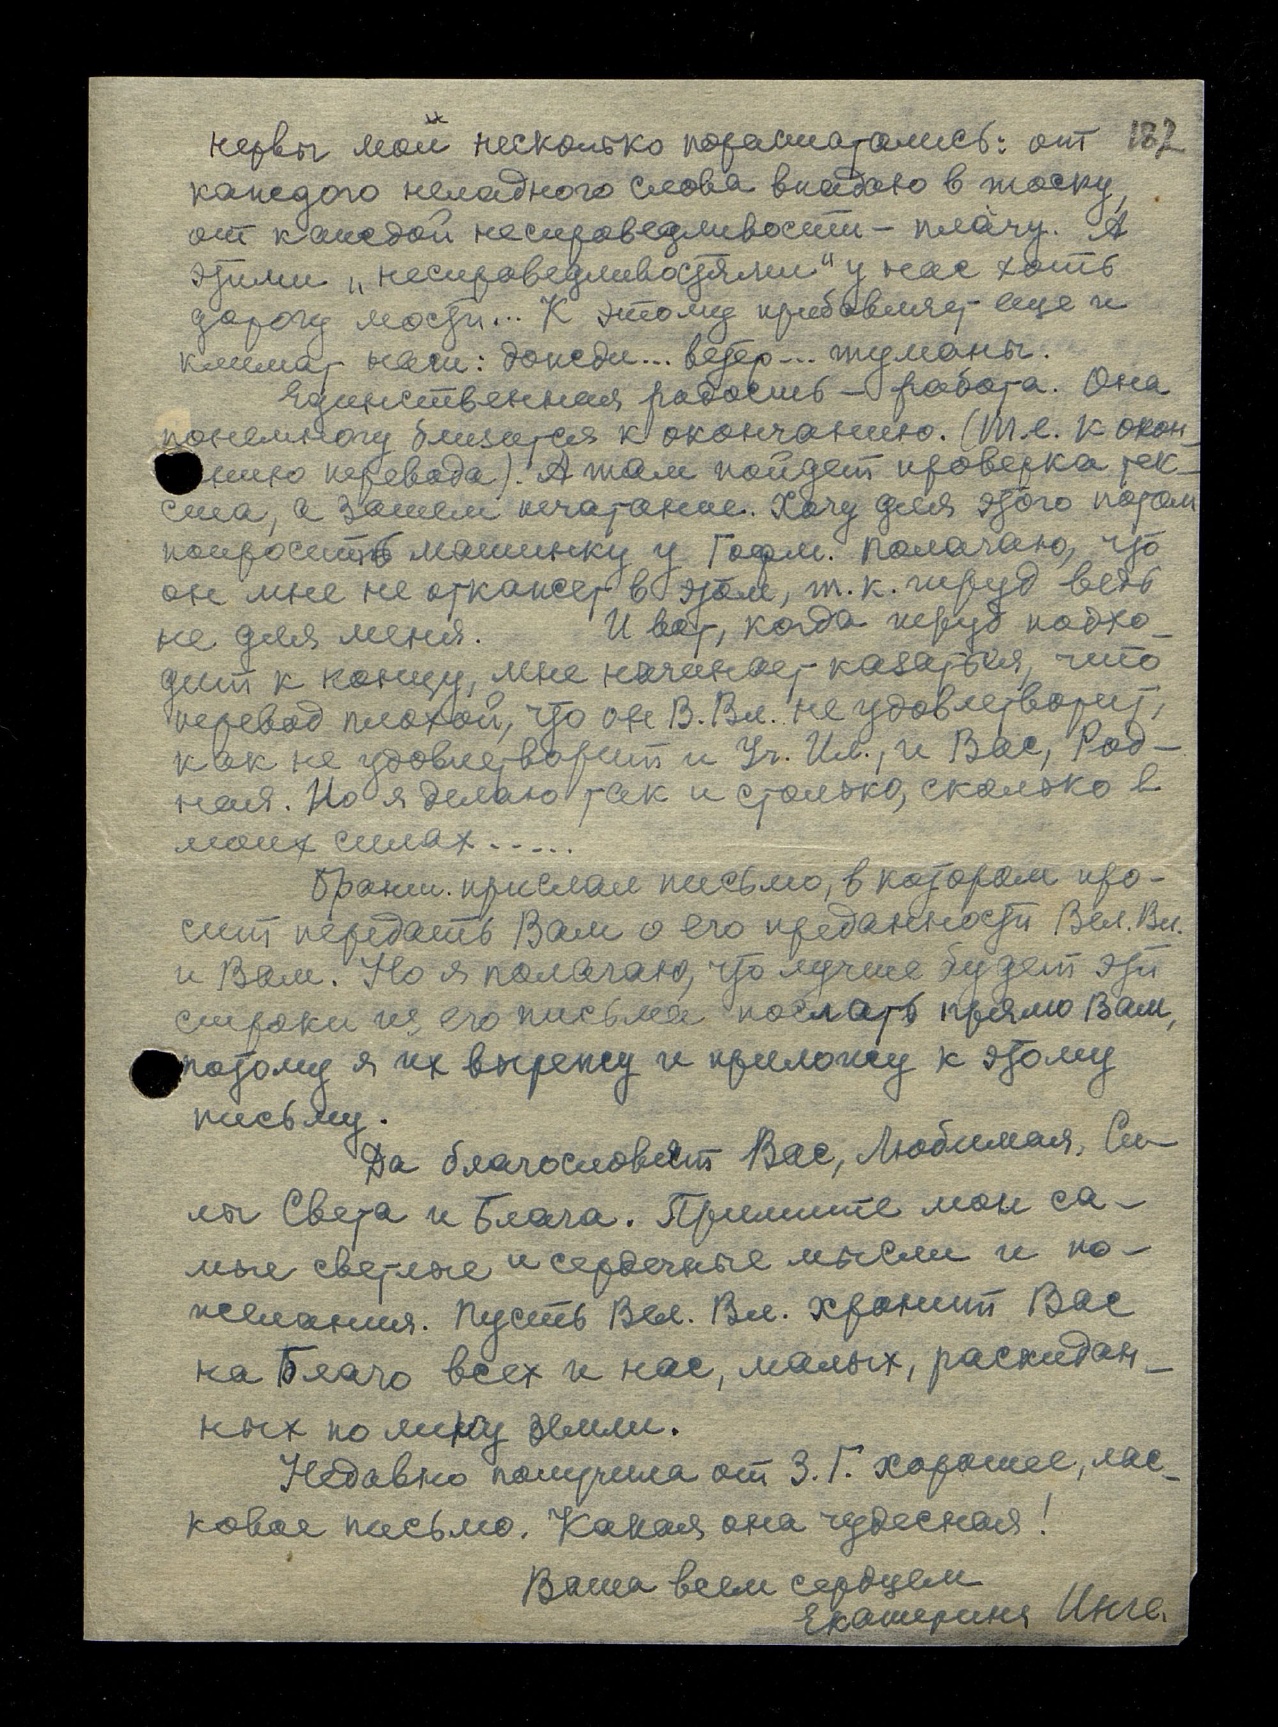 нервы мои несколько порасшатались: от 187
каждого неладного слова впадаю в тоску,
от каждой несправедливости – плачу. А
этими „несправедливостями" у нас хоть
дорогу мости... К этому прибавляет еще и
климат наш: дожди... ветер... туманы.
Единственная радость – работа. Она
понемногу близится к окончанию. (Т.е. к окон-
нию перевода). А там пойдет проверка тек-
ста, а затем печатание. Хочу для этого потом
попросить машинку у Гофм. Полагаю, что
он мне не откажет в этом, т.к. труд ведь
не для меня. И вот, когда труд подхо-
дит к концу, мне начинает казаться, что
перевод плохой, что он В. Вл. не удовлетворит,
как не удовлетворит и Уч. Ил., и Вас, Род-
ная. Но я делаю так и столько, сколько в
моих силах.....
прислал письмо, в котором про-
сит передать Вам о его преданности Вел. Вл.
и Вам. Но я полагаю, что лучше будет эти
строки из его письма послать прямо Вам,
потому я их вырежу и приложу к этому
письму.
Да благословят Вас, Любимая, Си-
лы Света и Блага. Примите мои са-
мые светлые и сердечные мысли и по-
желания. Пусть Вел. Вл. хранит Вас
на Благо всех и нас, малых, раскидан-
ных по лику земли.
Недавно получила от З. Г. хорошее, лас-
ковое письмо. Какая она чудесная!
Ваша всем сердцем
Екатерина Инге.